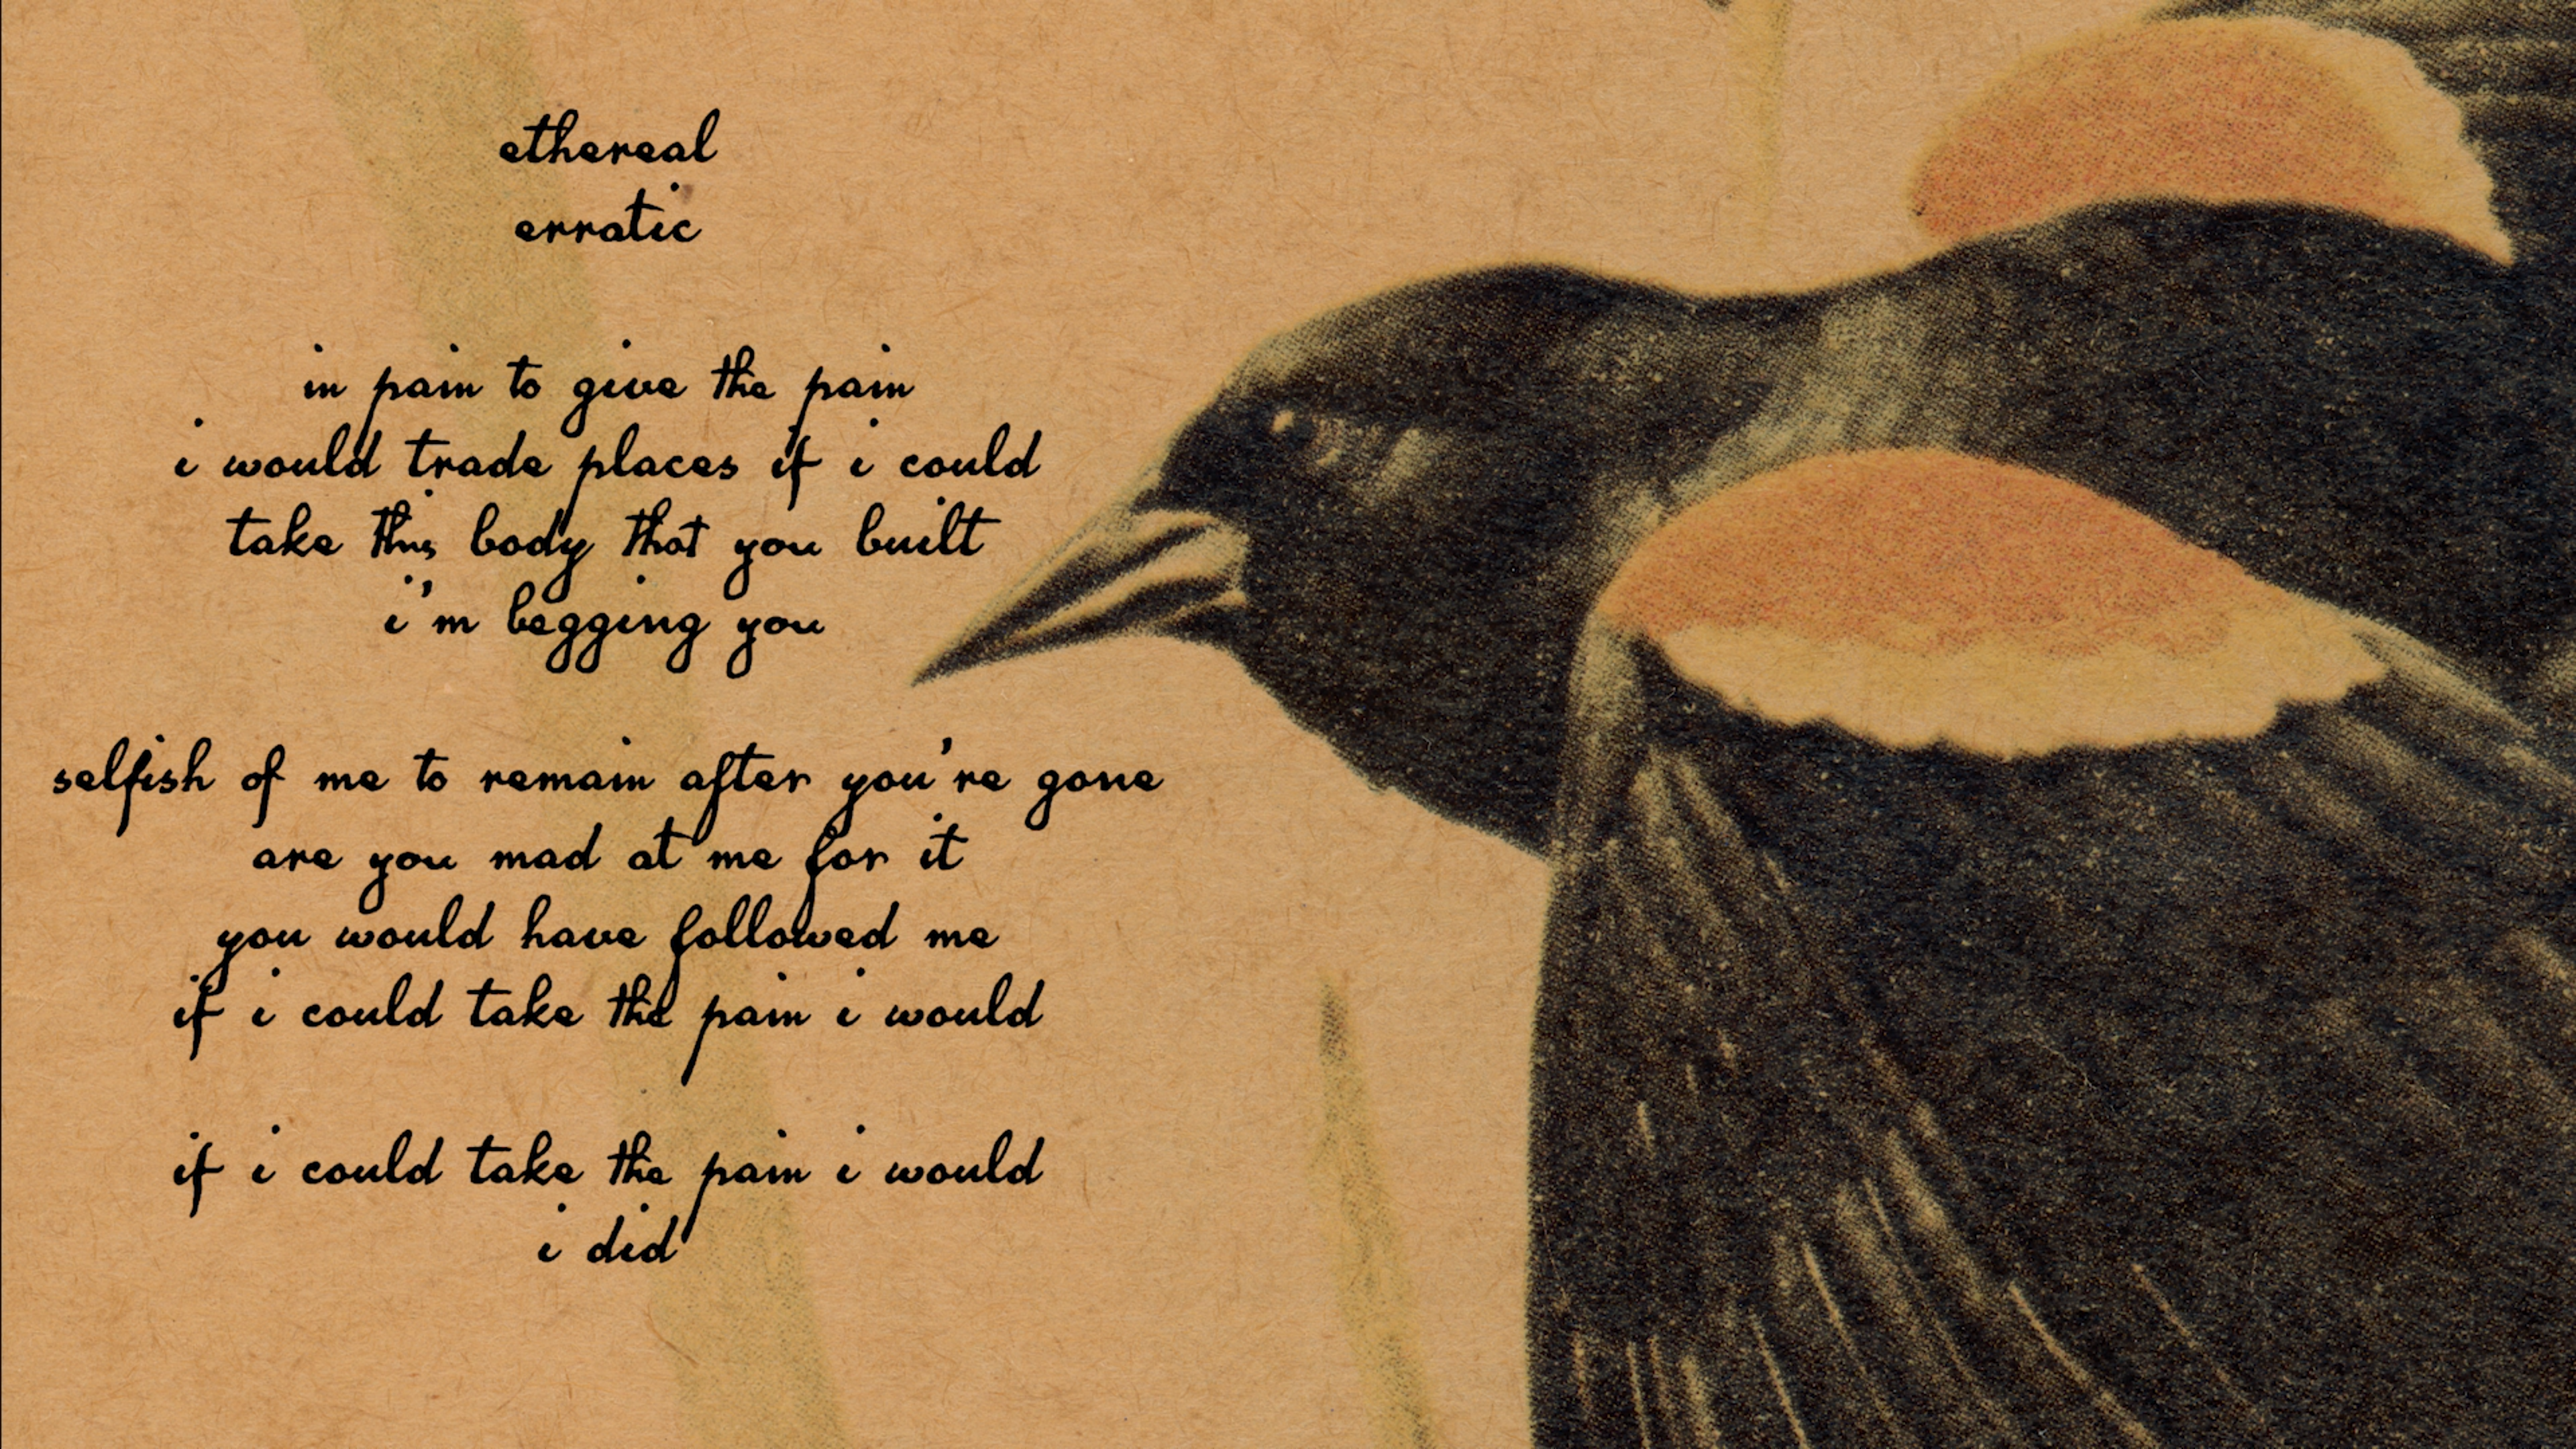 ethereal
erratic
in pain to give the pain
i would trade places if i could
take this body that you built
i'm begging you
selfish of me to remain after you're gone
are you mad at me for it
you would have followed me
if i could take the pain i would
if i could take the pain i would
i did